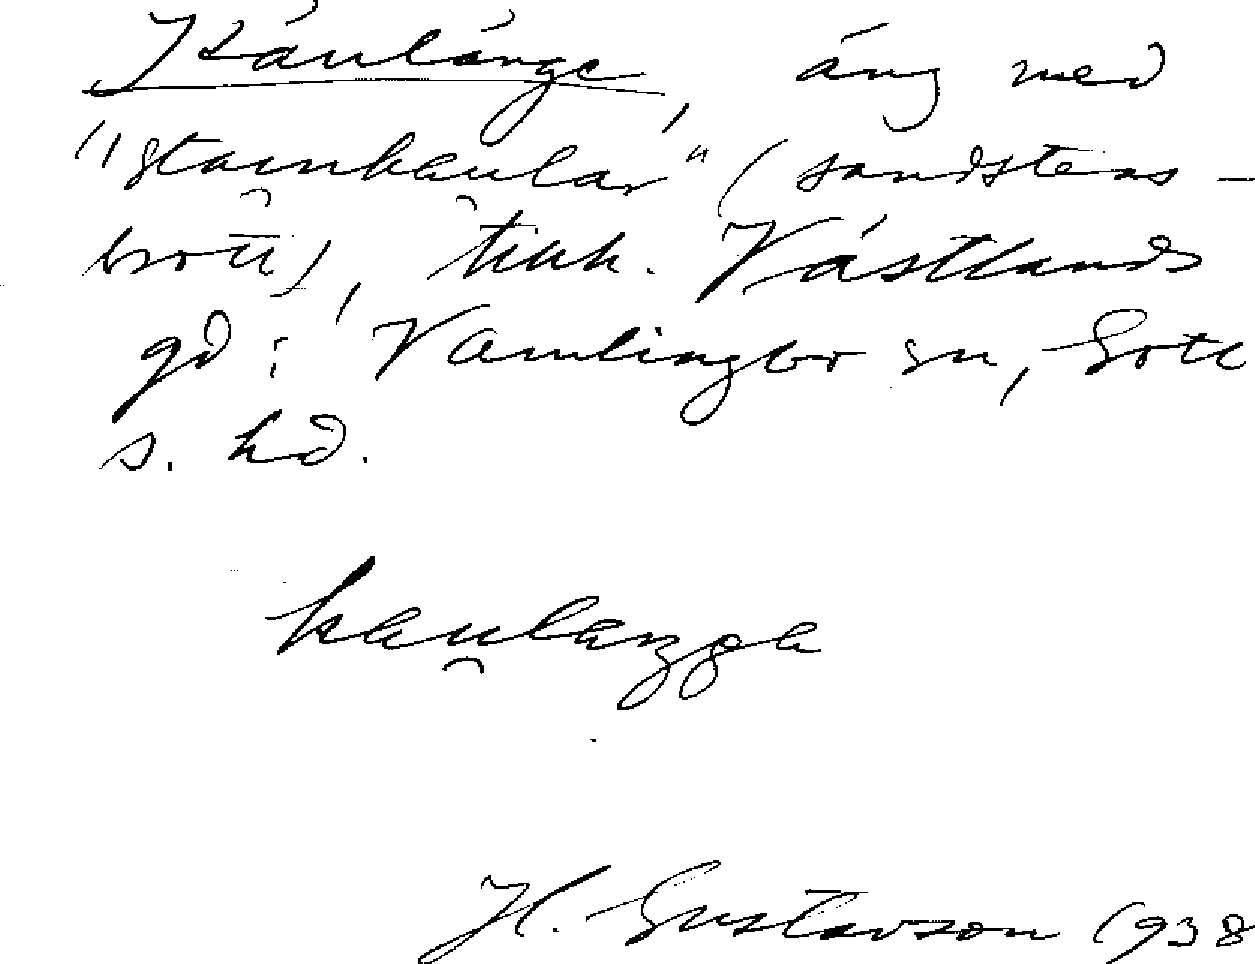 Käulänge, äng med
"stainkaular" (sandstens-
brott), tillh. Västlands
gd i Vamlingbo sn, Gotl
s. hd.
kau̯laŋga
H. Gustavson 1938